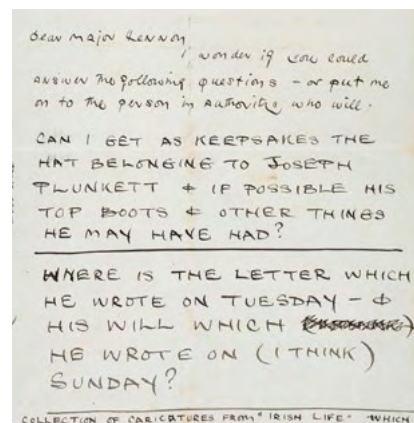 Dear Major Lennon,
I wonder if you could
answer the following questions – or put me
on to the person in authority who will.
CAN I GET AS KEEPSAKES THE
HAT BELONGING TO JOSEPH
PLUNKETT & IF POSSIBLE HIS
TOP BOOTS & OTHER THINGS
HE MAY HAVE HAD?
WHERE IS THE LETTER WHICH
HE WROTE ON TUESDAY – &
HIS WILL WHICH
HE WROTE ON (I THINK)
SUNDAY?
COLLECTION OF CARICATURES FROM "IRISH LIFE" WHICH